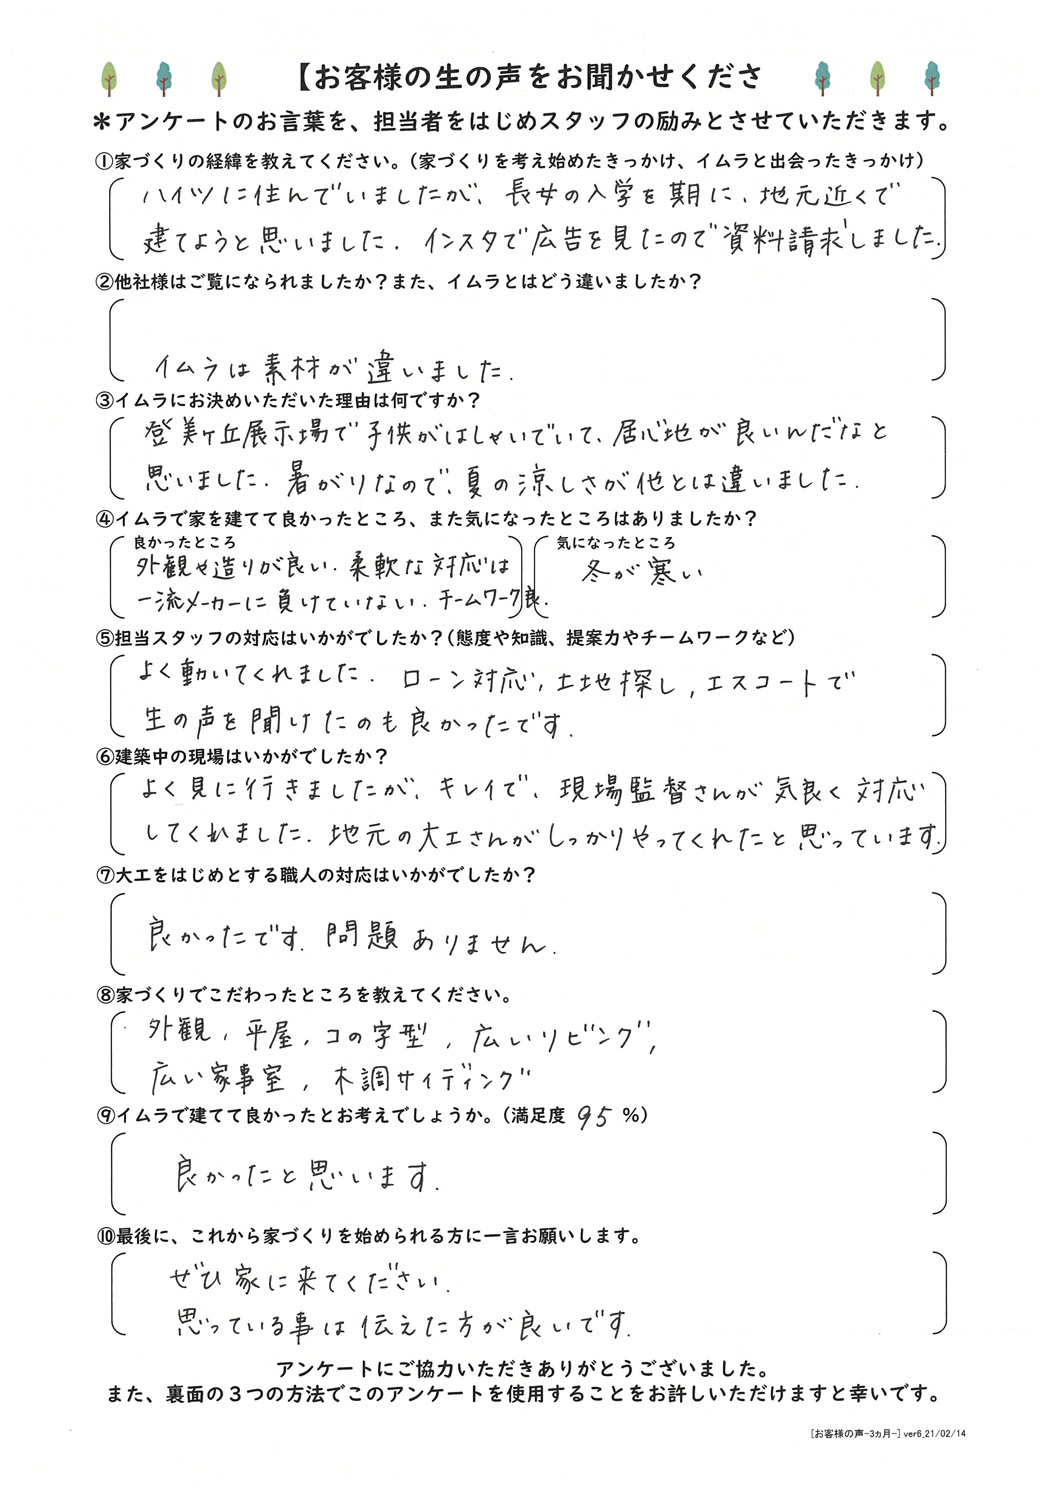 【お客様の生の声をお聞かせくださ
＊アンケートのお言葉を、担当者をはじめスタッフの励みとさせていただきます。
①家づくりの経緯を教えてください。（家づくりを考え始めたきっかけ、イムラと出会ったきっかけ）
ハイツに住んでいましたが、長女の入学を期に、地元近くで
建てようと思いました。インスタで広告を見たので資料請求しました。
②他社様はご覧になられましたか？また、イムラとはどう違いましたか？
イムラは素材が違いました。
③イムラにお決めいただいた理由は何ですか？
登美ヶ丘展示場で子供がはしゃいでいて、居心地が良いんだなと
思いました。暑がりなので、夏の涼しさが他とは違いました。
④イムラで家を建てて良かったところ、また気になったところはありましたか？
良かったところ
外観や造りが良い。柔軟な対応は
一流メーカーに負けていない。チームワーク良。
気になったところ
冬が寒い
⑤担当スタッフの対応はいかがでしたか？（態度や知識、提案力やチームワークなど）
よく動いてくれました。ローン対応，土地探し，エスコートで
生の声を聞けたのも良かったです。
⑥建築中の現場はいかがでしたか？
よく見に行きましたが、キレイで、現場監督さんが気良く対応
してくれました。地元の大工さんがしっかりやってくれたと思っています。
⑦大工をはじめとする職人の対応はいかがでしたか？
良かったです。問題ありません。
⑧家づくりでこだわったところを教えてください。
外観，平屋，コの字型，広いリビング，
広い家事室，木調サイディング
⑨イムラで建てて良かったとお考えでしょうか。（満足度 95 %）
良かったと思います。
⑩最後に、これから家づくりを始められる方に一言お願いします。
ぜひ家に来てください。
思っている事は伝えた方が良いです。
アンケートにご協力いただきありがとうございました。
また、裏面の３つの方法でこのアンケートを使用することをお許しいただけますと幸いです。
[お客様の声-3ヵ月-] ver6_21/02/14